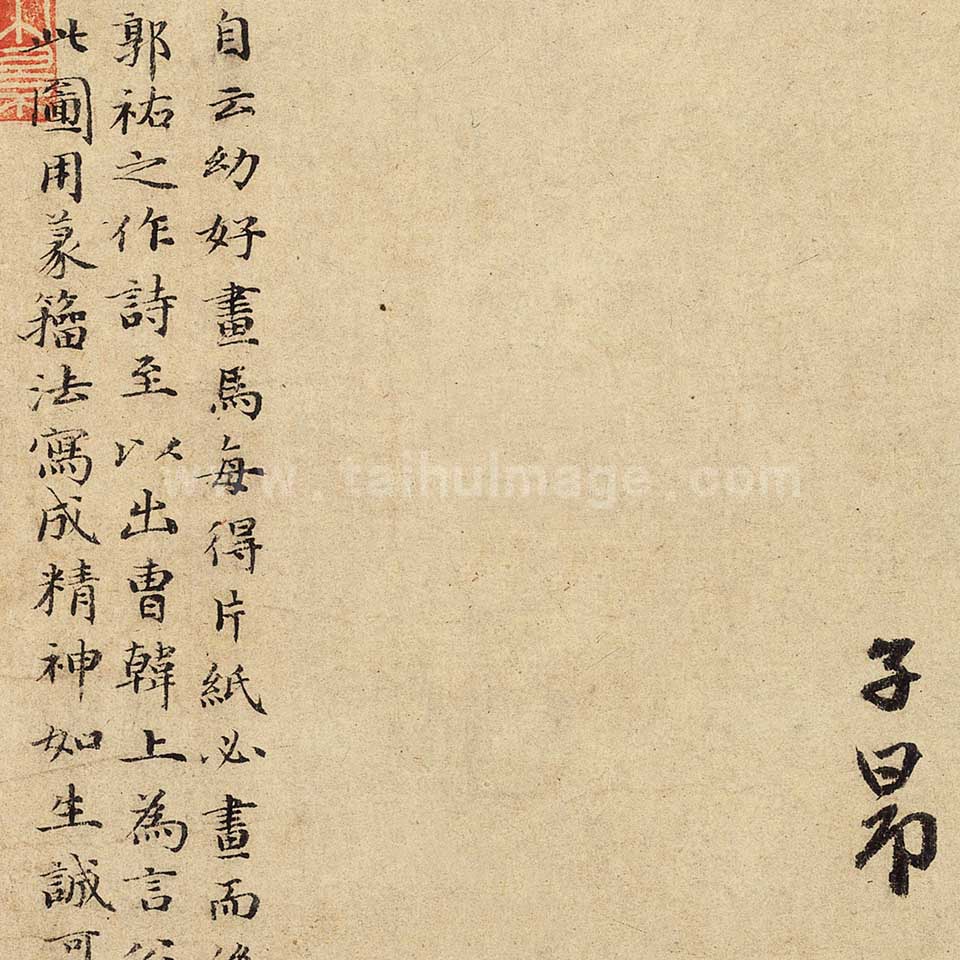 子昂
自云幼好畫馬每得片紙必畫而後
郭祐之作詩至以出曹韓上為言公
此圖用篆籀法寫成精神如生誠可
www.taihuimage.com